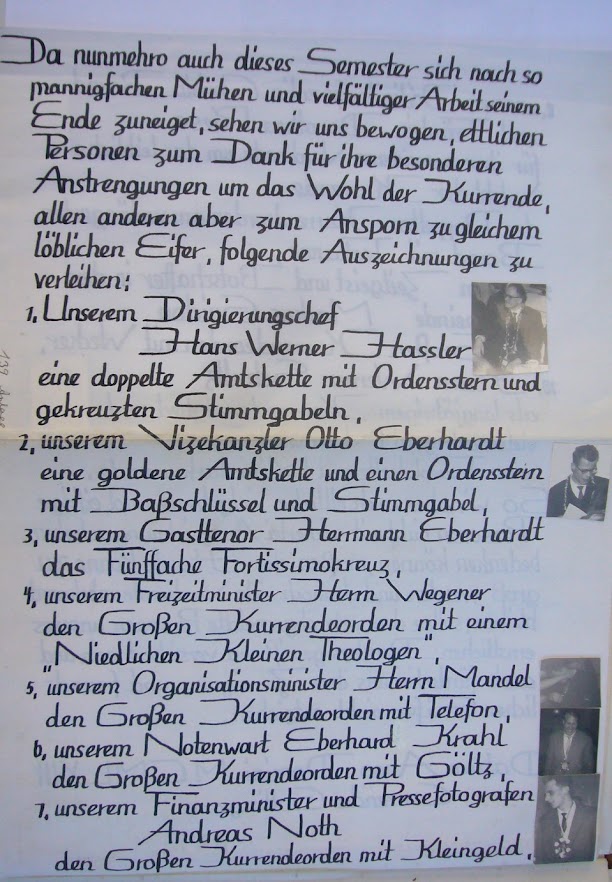 Da nunmehro auch dieses Semester sich nach so
mannigfachen Mühen und vielfältiger Arbeit seinem
Ende zuneiget, sehen wir uns bewogen, ettlichen
Personen zum Dank für ihre besonderen
Anstrengungen um das Wohl der Kurrende,
allen anderen aber zum Ansporn zu gleichem
löblichen Eifer, folgende Auszeichnungen zu
verleihen:
1, Unserem Dirigierungschef
Hans Werner Hassler
eine doppelte Amtskette mit Ordensstern und
gekreuzten Stimmgabeln,
2, unserem Vizekanzler Otto Eberhardt
eine goldene Amtskette und einen Ordensstern
mit Baßschlüssel und Stimmgabel,
3, unserem Gasttenor Hermann Eberhardt
das Fünffache Fortissimokreuz,
4, unserem Freizeitminister Herrn Wegener
den Großen Kurrendeorden mit einem
„Niedlichen Kleinen Theologen",
5, unserem Organisationsminister Herrn Mandel
den Großen Kurrendeorden mit Telefon,
6, unserem Notenwart Eberhard Krahl
den Großen Kurrendeorden mit Göltz,
7, unserem Finanzminister und Pressefotografen
Andreas Noth
den Großen Kurrendeorden mit Kleingeld,